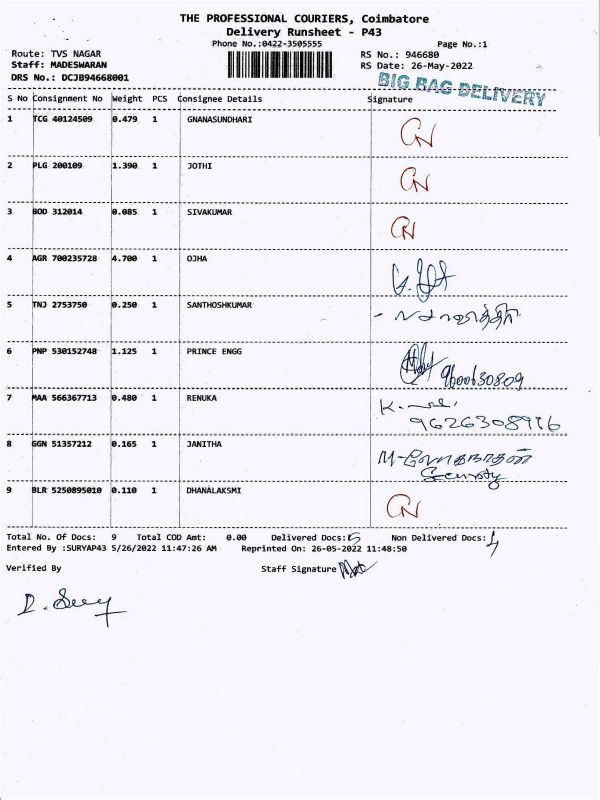 THE PROFESSIONAL COURIERS, Coimbatore
Delivery Runsheet - P43
Phone No.:0422-3505555 Page No.:1
Route: TVS NAGAR RS No.: 946680
Staff: MADESWARAN RS Date: 26-May-2022
DRS No.: DCJB94668001 BIG BAG DELIVERY
S No Consignment No Weight PCS Consignee Details Signature
1 TCG 40124509 0.479 1 GNANASUNDHARI CN
2 PLG 200109 1.390 1 JOTHI CN
3 BOD 312014 0.085 1 SIVAKUMAR CN
4 AGR 700235728 4.700 1 OJHA
5 TNJ 2753750 0.250 1 SANTHOSHKUMAR
6 PNP 530152748 1.125 1 PRINCE ENGG 9600630809
7 MAA 566367713 0.480 1 RENUKA
8 GGN 51357212 0.165 1 JANITHA
Security
9 BLR 5250895010 0.110 1 DHANALAKSMI CN
Total No. Of Docs: 9 Total COD Amt: 0.00 Delivered Docs: 5 Non Delivered Docs: 4
Entered By :SURYAP43 5/26/2022 11:47:26 AM Reprinted On: 26-05-2022 11:48:50
Verified By Staff Signature